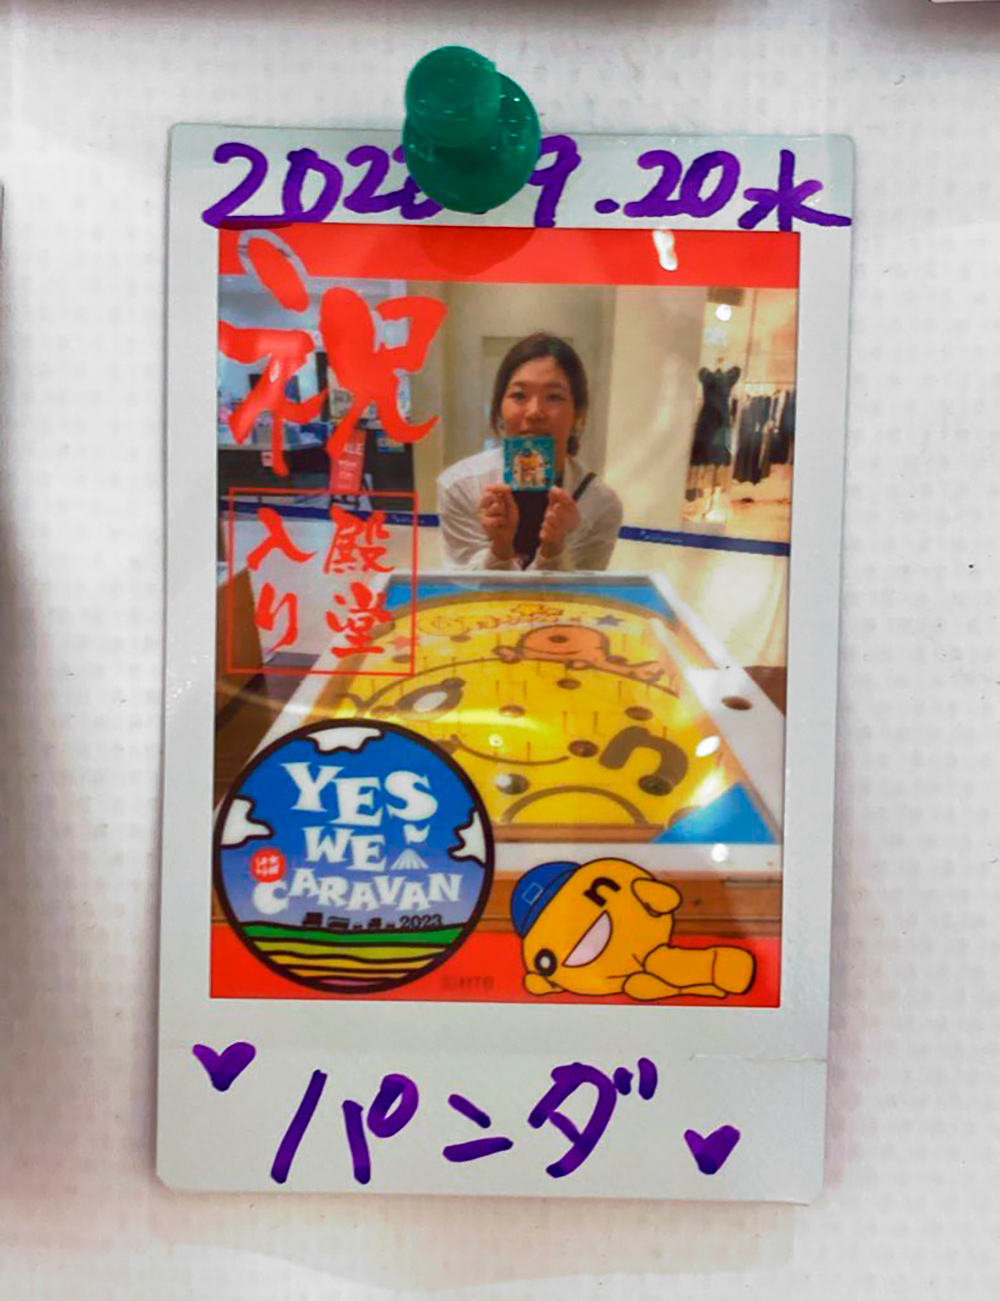 202 9.20水
祝
殿堂
入り
YES
WE
CARAVAN
2023
©HTB
n
n
パンダ